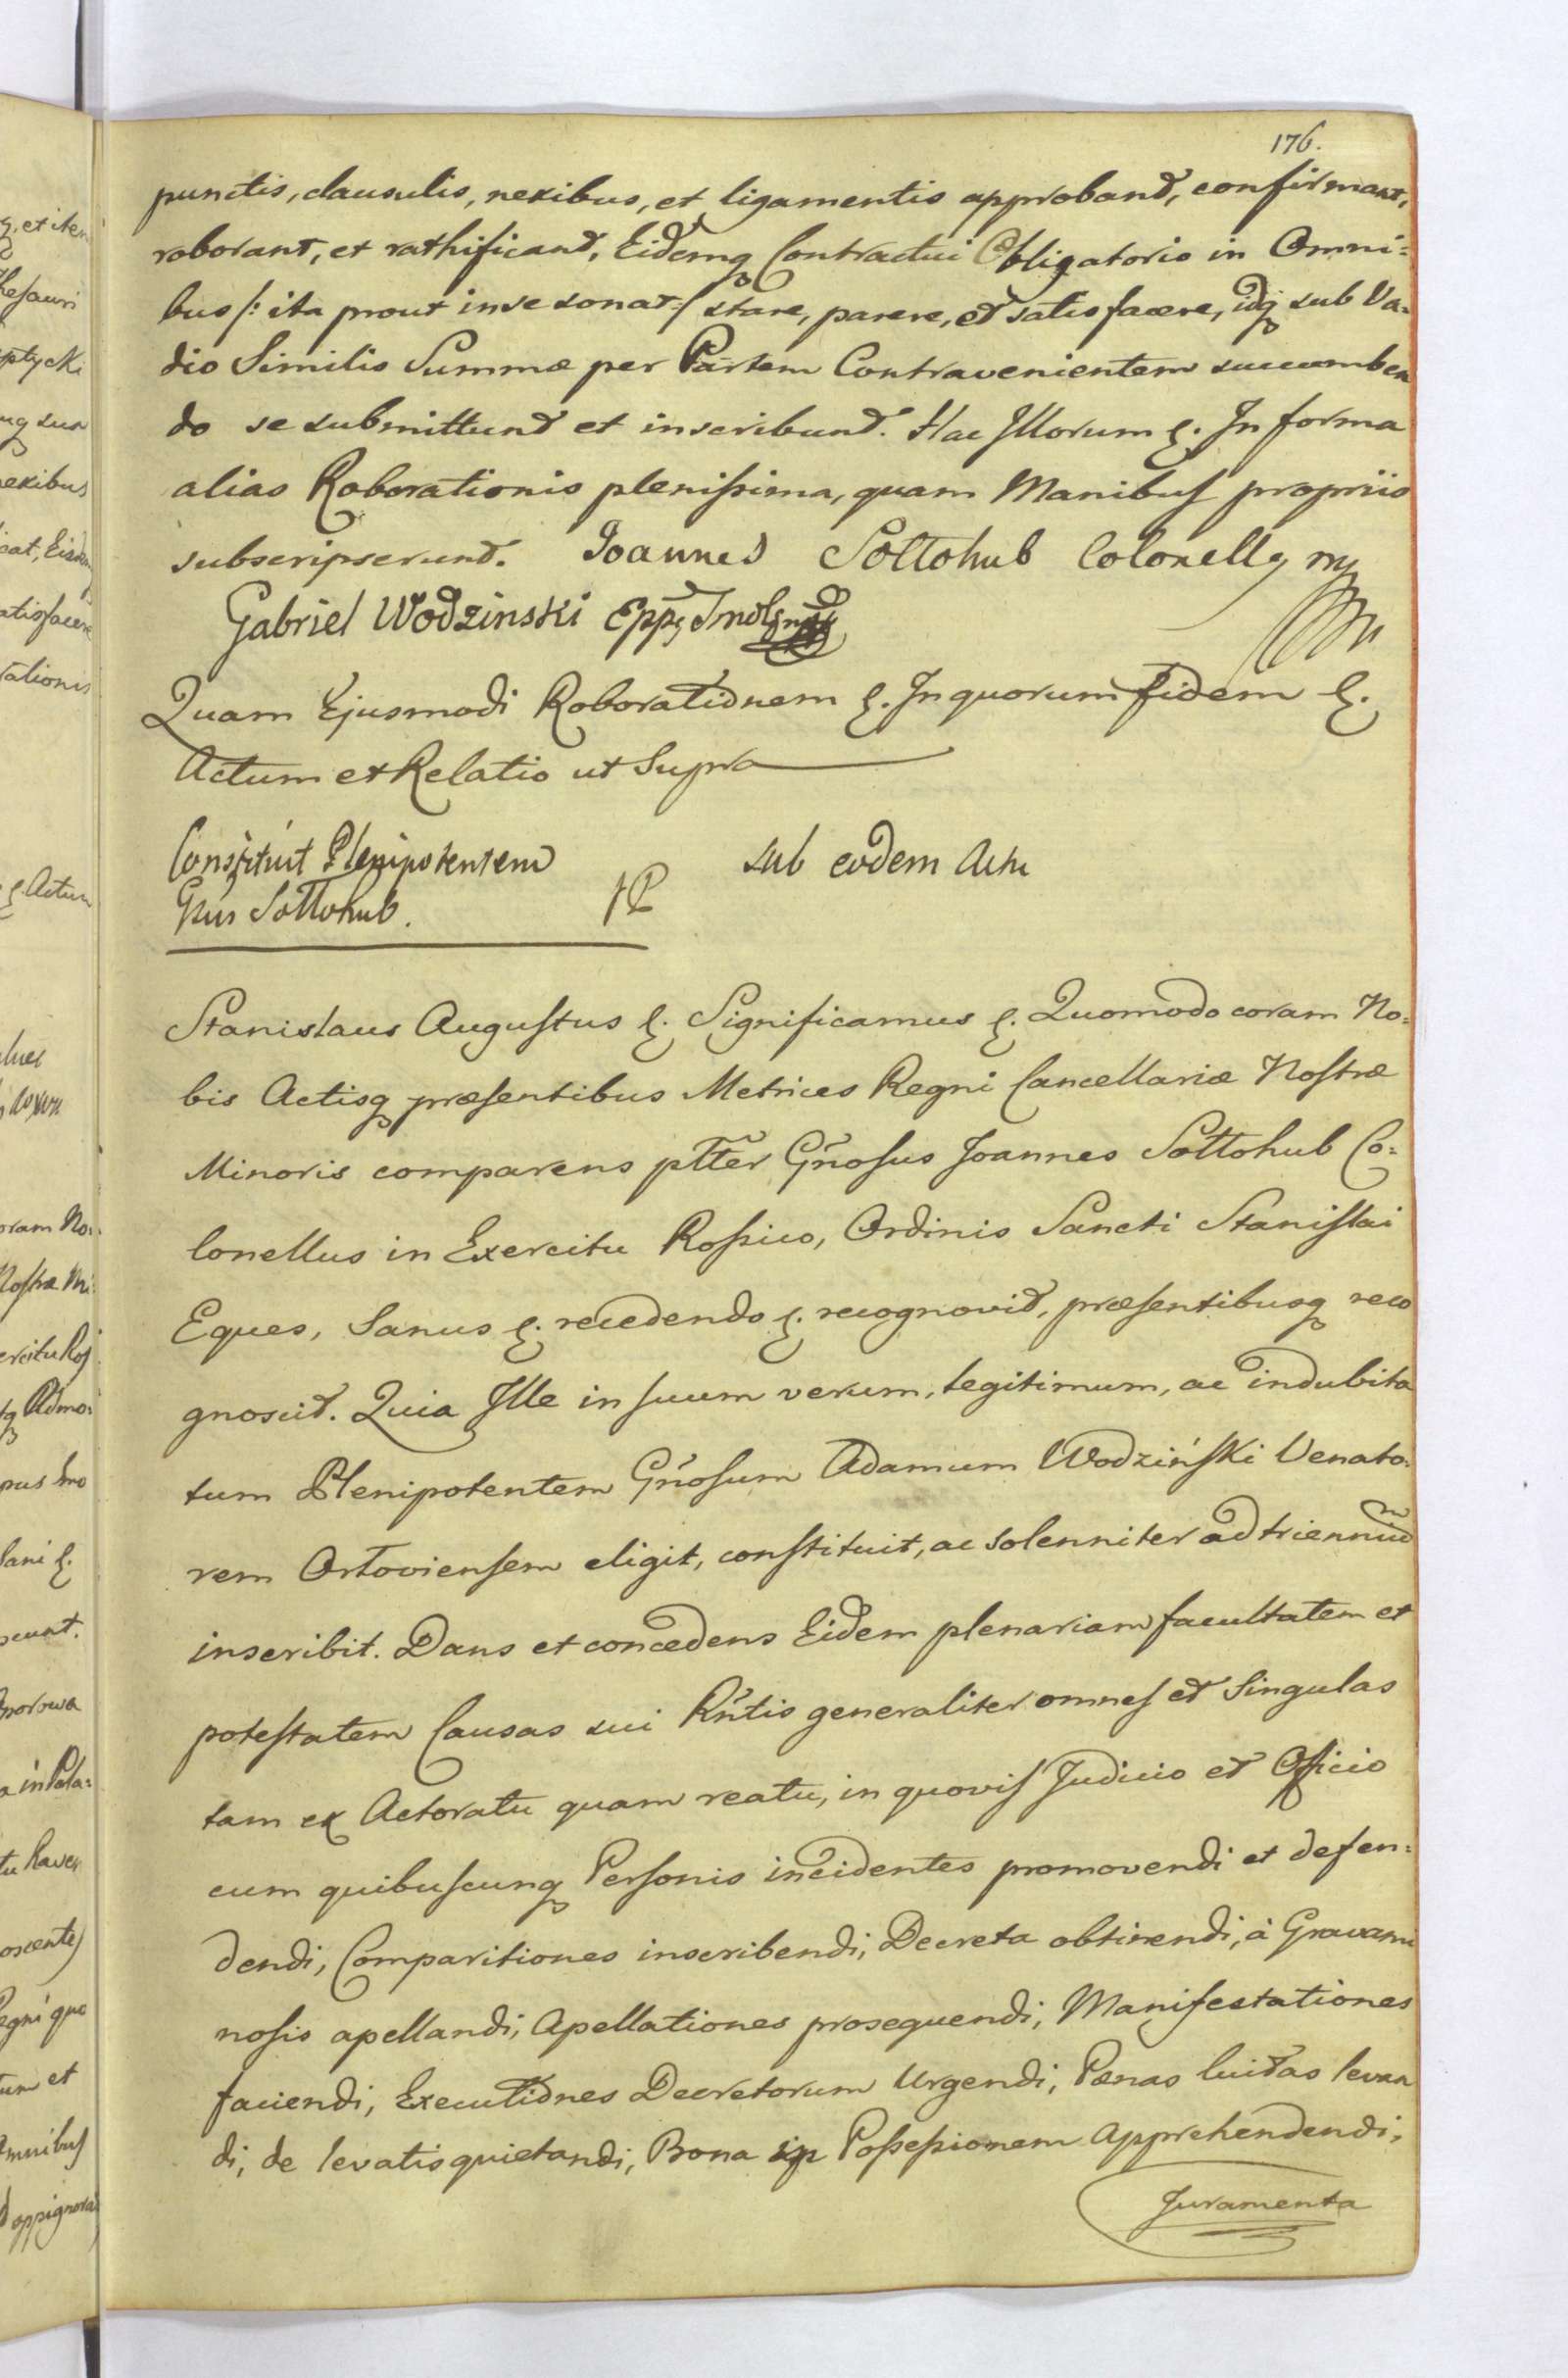 176.
punctis, clausulis, nexibus, et ligamentis approbant, confirmant,
roborant, et rathificant, Eidemq Contractui Obligatorio in Omni=
bus /: ita prout in se sonat :/ stare, parere, et satisfacere, idq sub Va=
dio Similis Summæ per Partem Contravenientem succumben
do se submittunt et inscribunt. Hac Illorum &. In forma
alias Roborationis plenissima, quam Manibus propriis
subscripserunt. Joannes Sołłohub Colonellq mp
Gabriel Wodzinski Eppq Smolen
Quam Ejusmodi Roborationem &. In quorum fidem &.
Actum et Relatio ut Supra
Constituit Plenipotentem
Gsus Sołłohub.
sub eodem Actu
Stanislaus Augustus &. Significamus &. Quomodo coram No=
bis Actisq præsentibus Metrices Regni Cancellariæ Nostræ
Minoris comparens ptter Gnosus Joannes Sołłohub Co=
lonellus in Exercitu Rossico, Ordinis Sancti Stanislai
Eques, Sanus &. recedendo &. recognovit, præsentibusq reco
gnoscit. Quia Ille in suum verum, legitimum, ac indubita
tum Plenipotentem Gnosum Adamum Wodziński Venato=
rem Orłoviensem eligit, constituit, ac solenniter ad trienniū
inscribit. Dans et concedens Eidem plenariam facultatem et
potestatem Causas sui Rntis generaliter omnes et Singulas
tam ex Actoratu quam reatu, in quovis Judicio et Officio
cum quibuscunq Personis incidentes promovendi et defen=
dendi, Comparitiones inscribendi, Decreta obtinendi, à Gravami
nosis apellandi, Apellationes prosequendi, Manifestationes
faciendi, Executiones Decretorum Urgendi, Pænas luitas levan
di, de levatis quietandi, Bona in Possessionem Apprehendendi,
Juramenta